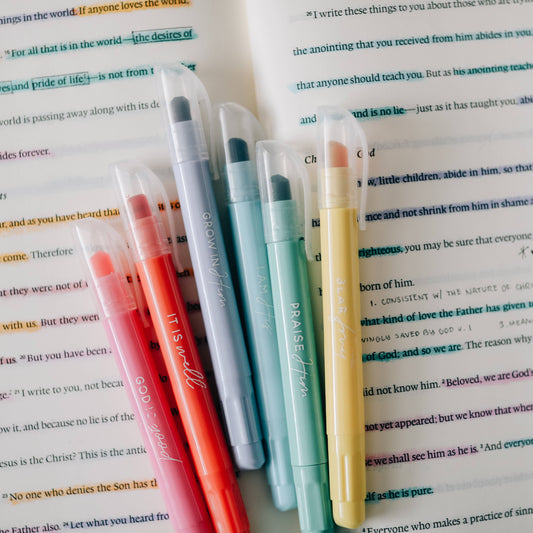 ings in the world. If anyone loves the world,
15 For all that is in the world—the desires of
yes and pride of life—is not from th
world is passing away along with its de
ides forever.
ts
ar, and as you have heard tha
come. Therefore
t they were not of
with us. But they were
of us. 20 But you have been
ge. 21 I write to you, not becau
ow it, and because no lie is of the
esus is the Christ? This is the antic
23 No one who denies the Son has th
he Father also. 24 Let what you heard from
26 I write these things to you about those who are tryin
the anointing that you received from him abides in you,
that anyone should teach you. But as his anointing teache
and is no lie—just as it has taught you, abid
Ch God
ow, little children, abide in him, so that
ence and not shrink from him in shame a
righteous, you may be sure that everyone
born of him.
1. CONSISTENT W/ THE NATURE OF CHRI
what kind of love the Father has given to
NGLY SAVED BY GOD V. 1
3. MEAN
of God; and so we are. The reason why
did not know him. 2 Beloved, we are God's
not yet appeared; but we know that when
se we shall see him as he is. 3 And everyone
elf as he is pure.
4 Everyone who makes a practice of sinn
GOD is good
IT IS well
GROW IN Him
I AM His
PRAISE Him
BEAR fruit